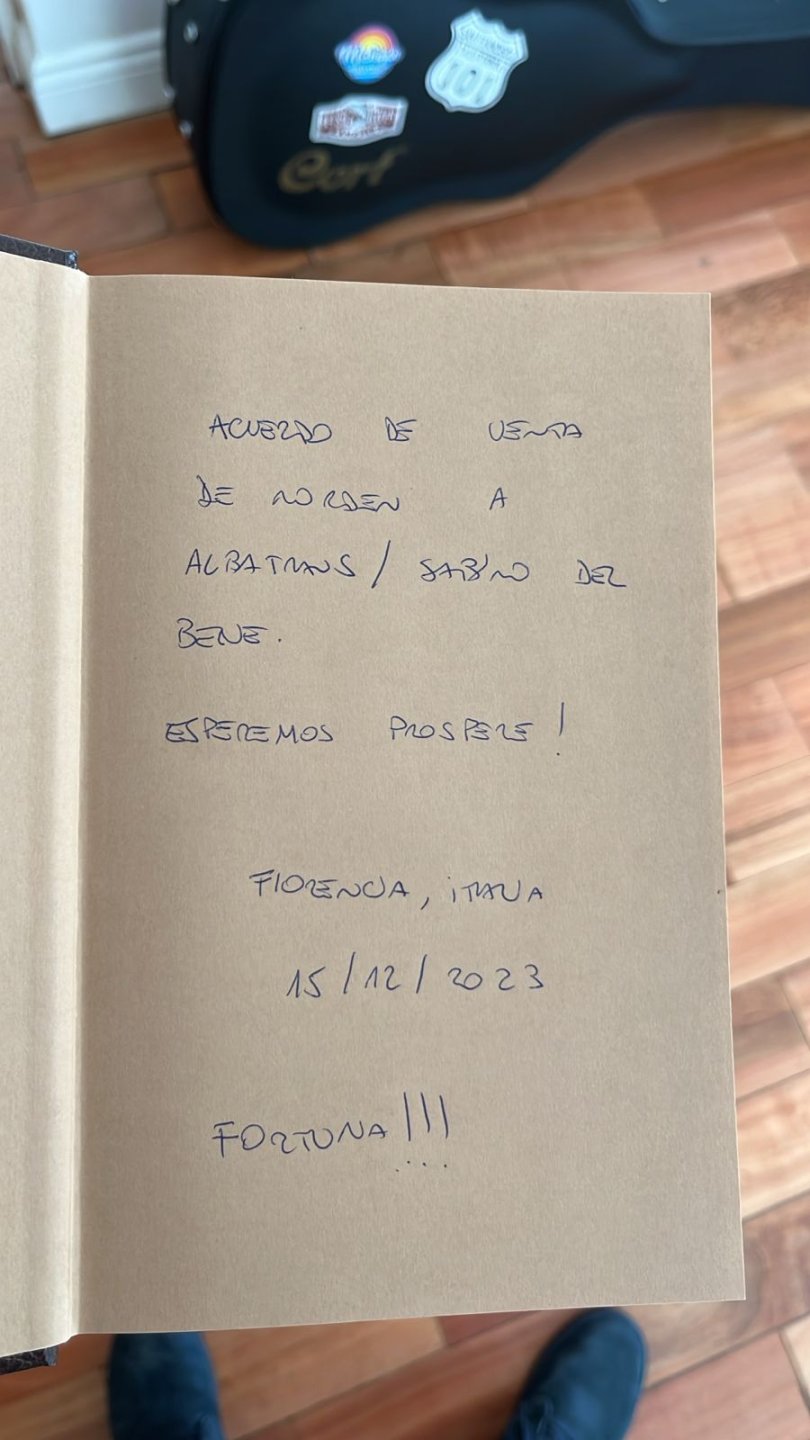 101
Cort
ACUERDO DE VENTA
DE NORDEN A
ALBATRANS / SABINO DEL
BENE.
ESPEREMOS PROSPERE!
FIORENCIA, ITALIA
15/12/2023
FORTUNA!!!